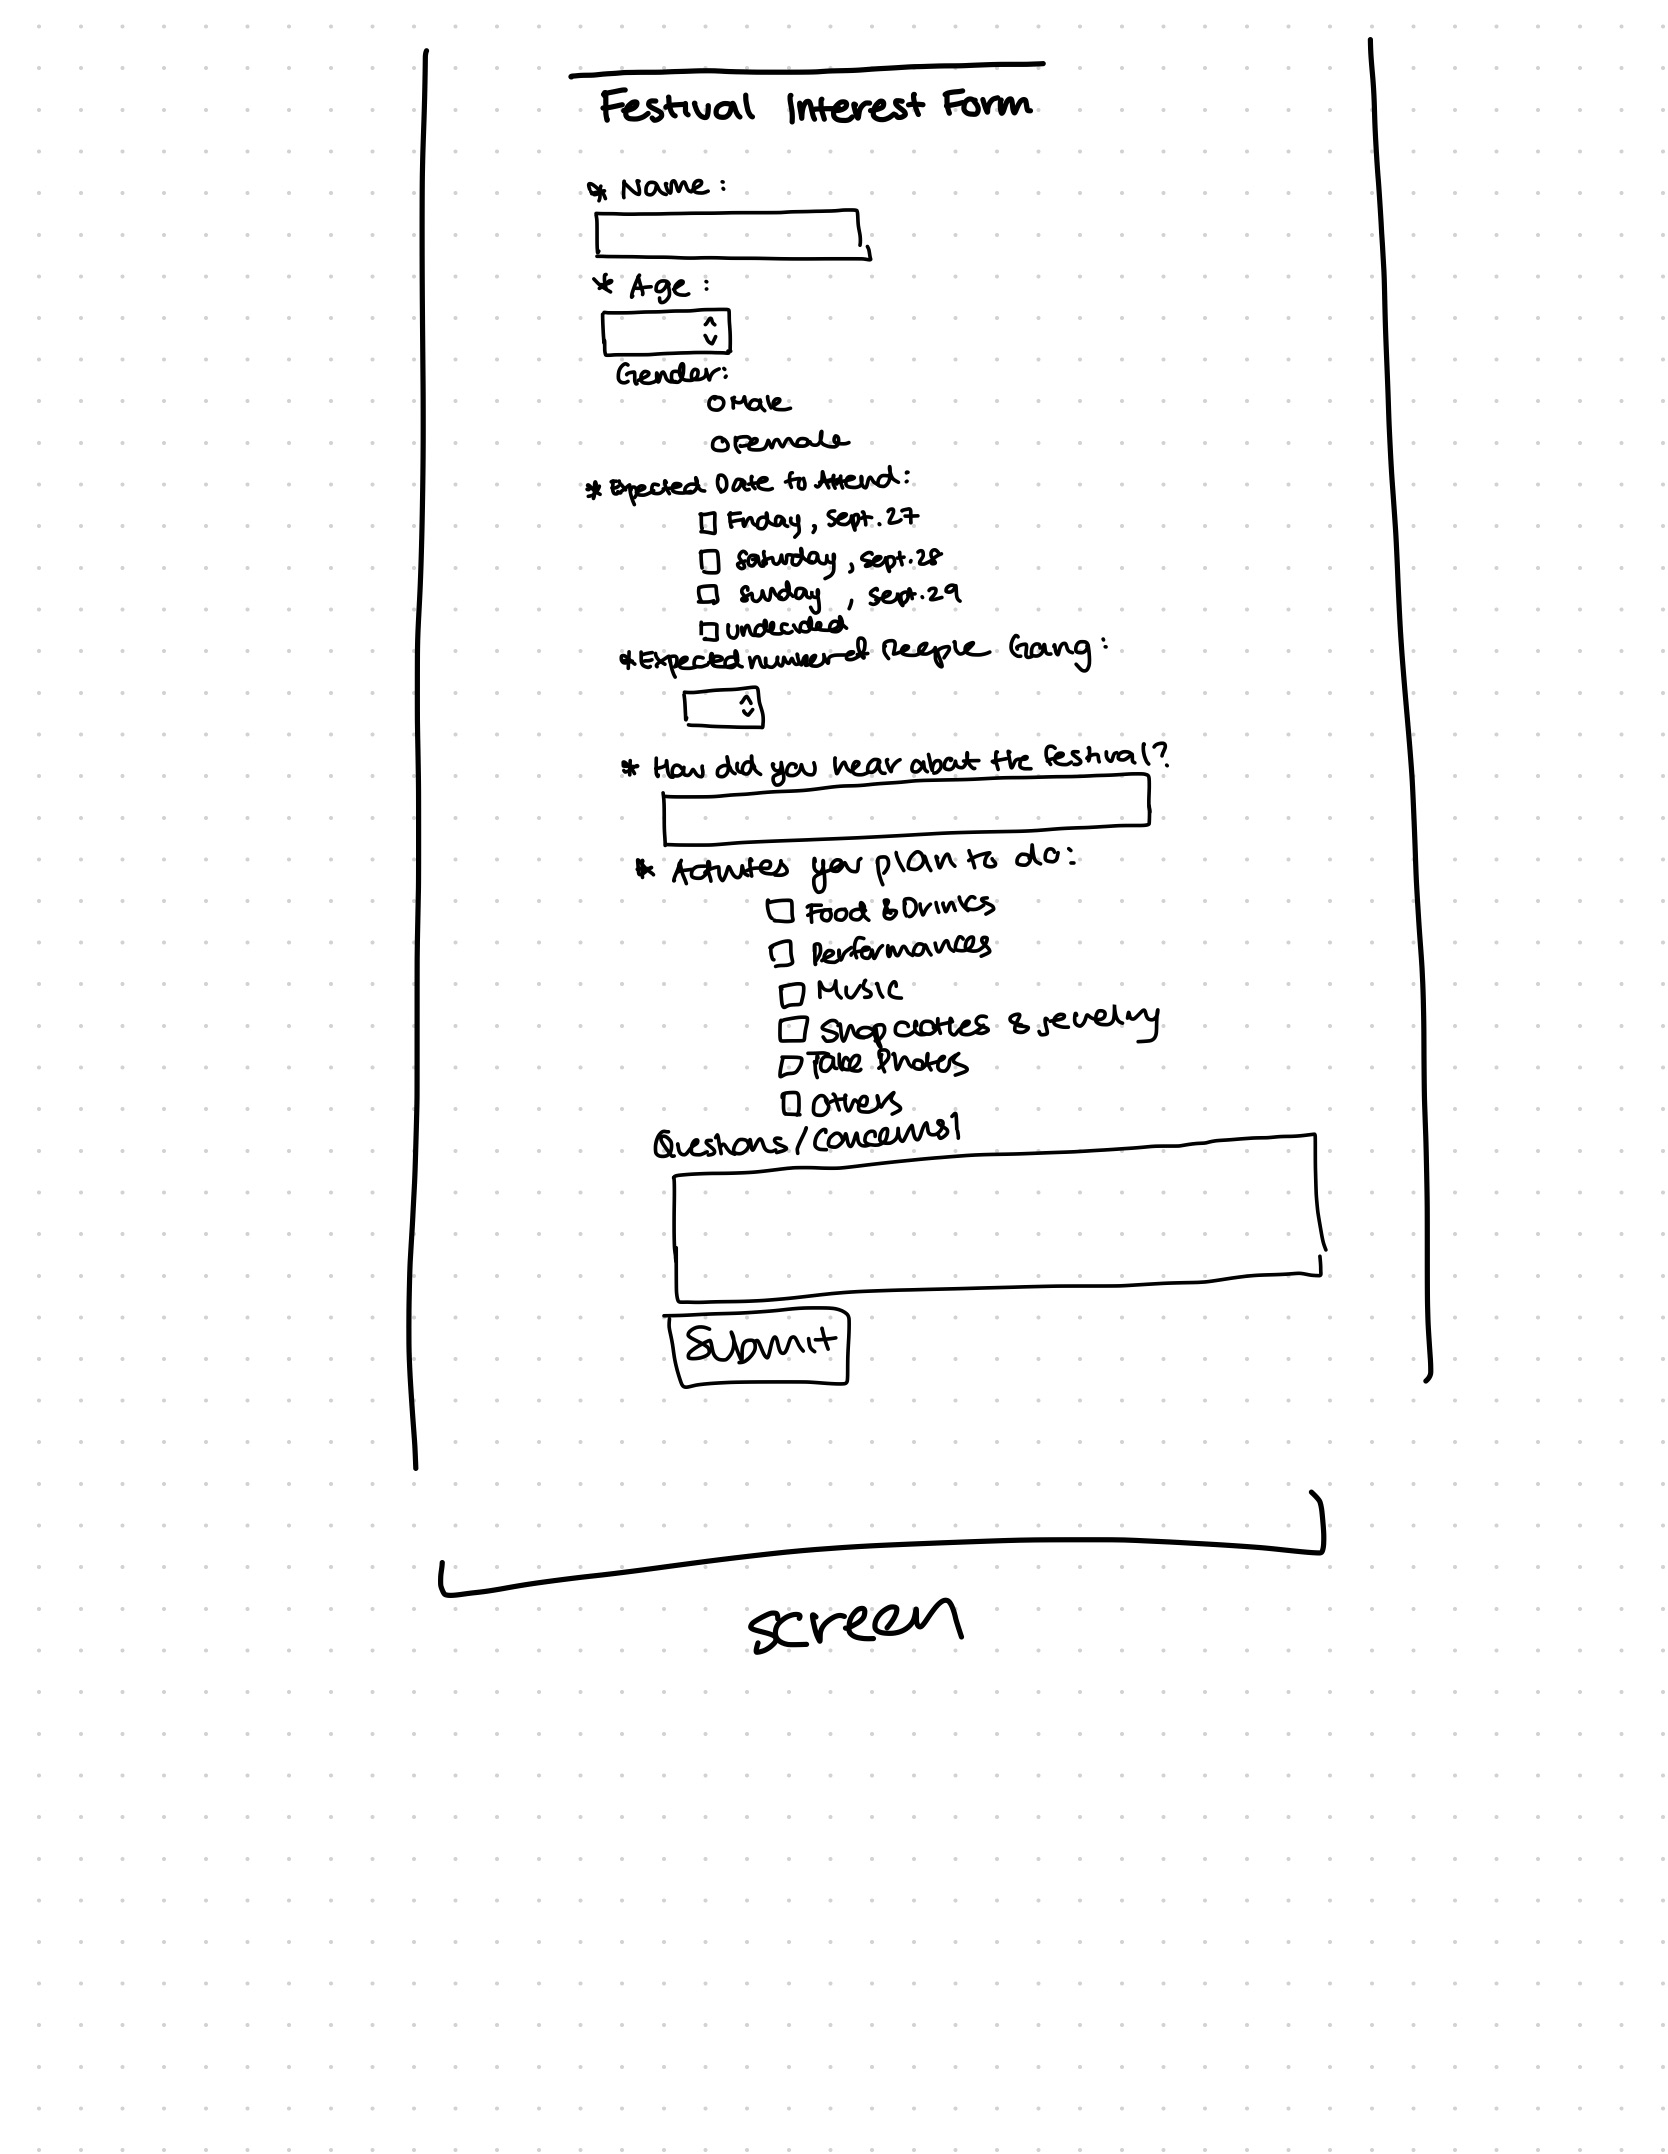 Festival Interest Form
* Name:
* Age:
Gender:
Male
Female
* Expected Date to Attend:
Friday, Sept. 27
Saturday, Sept. 28
Sunday, Sept. 29
undecided
* Expected number of People Going:
* How did you hear about the festival?
* Activites you plan to do:
Food & Drinks
Performances
Music
Shop clothes & jewelry
Take Photos
Others
Questions/Concerns
Submit
screen